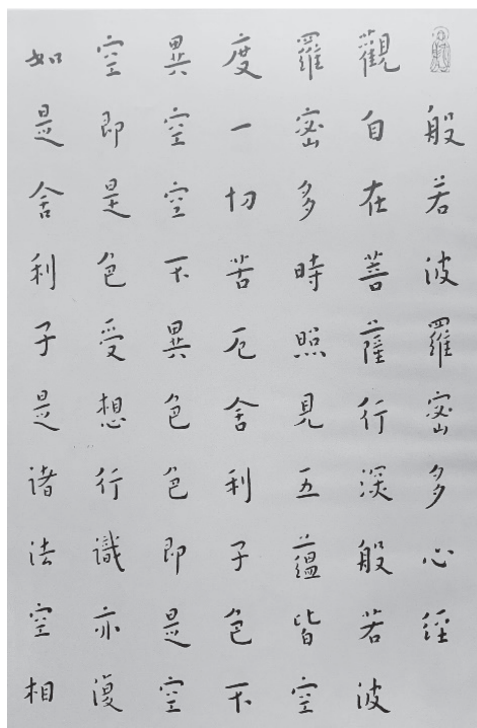 般若波羅密多心經
觀自在菩薩行深般若波
羅密多時照見五蘊皆空
度一切苦厄舍利子色不
異空空不異色色即是空
空即是色受想行識亦復
如是舍利子是诸法空相